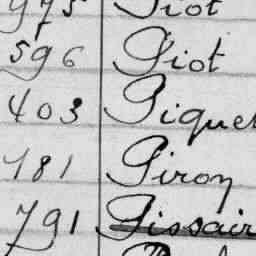 975 Piot
596 Piot
403 Piquet
181 Piron
791 Pissair